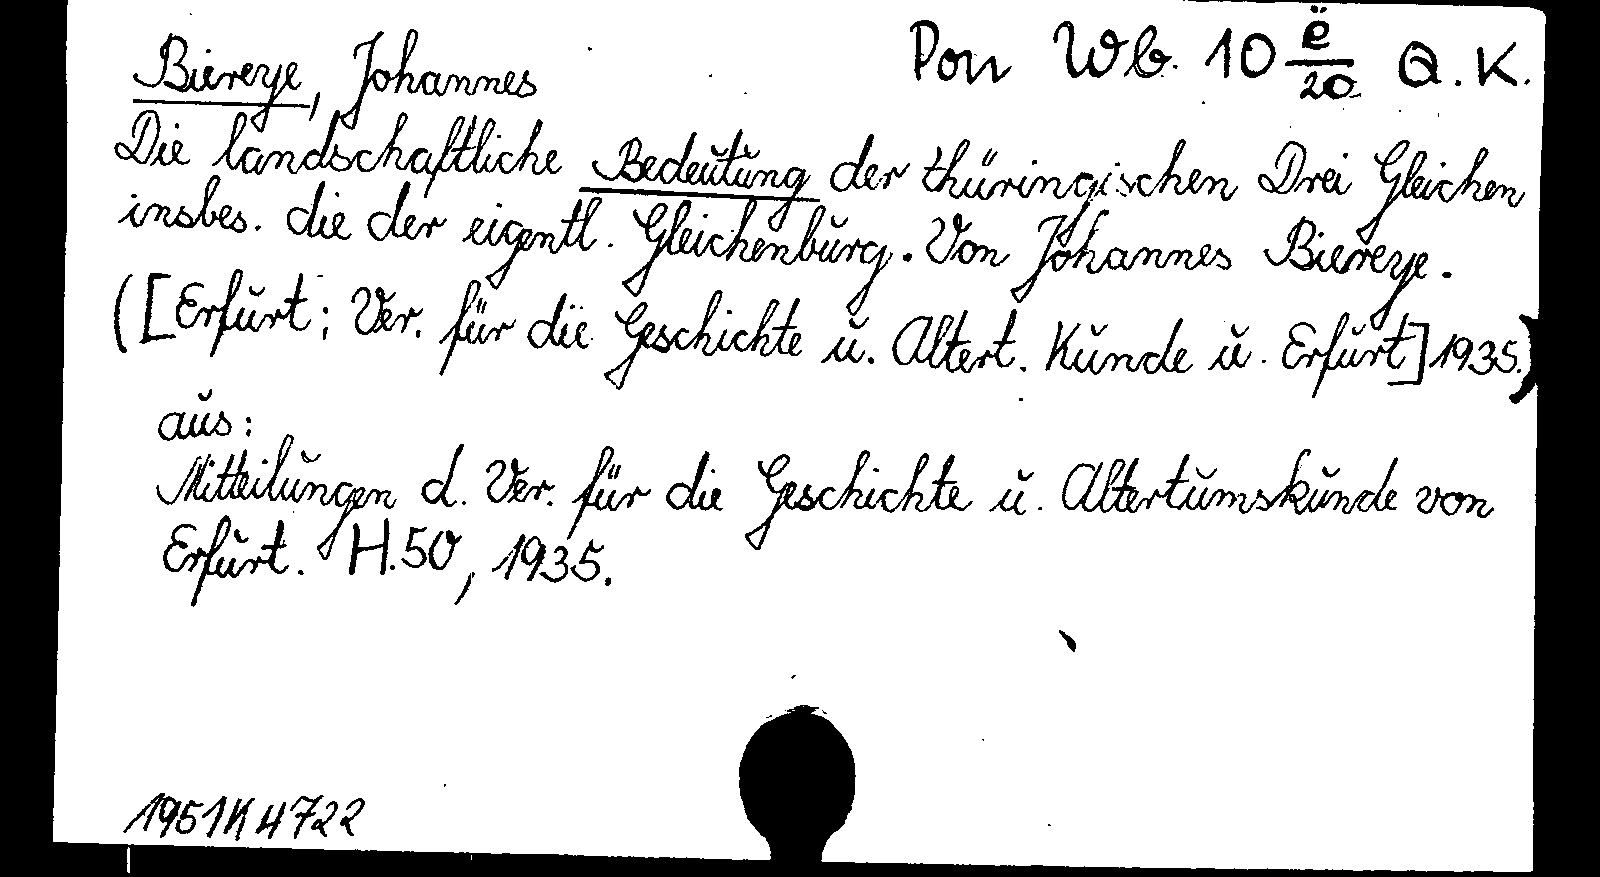 Biereye, Johannes
Pon Wb. 10 ë/20 Q.K.
Die landschaftliche Bedeutung der thüringischen Drei Gleichen
insbes. die der eigentl. Gleichenburg. Von Johannes Biereye.
([Erfurt; Ver. für die Geschichte u. Altert. Kunde u. Erfurt] 1935.)
aus:
Mitteilungen d. Ver. für die Geschichte u. Altertumskunde von
Erfurt. H.50, 1935.
1951K4722